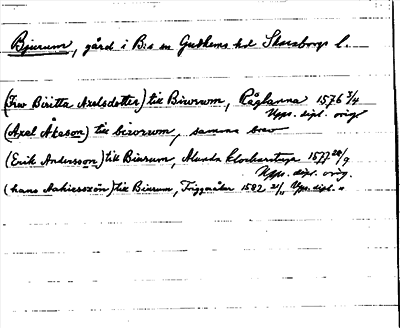 Bjurum, gård i B:s sn Gudhems hd Skarabergs l.
(Frw Biritta Axelsdotter) till Biwrwm, Råglanna 1576 3/4
Upps. dipl. orig.
(Axel Åkeson) till birorwm, samma brev
(Erik Andersson) till Biurum, Alunda klockarstuga 1577 20/9
Upps. dipl. orig.
(hans Aakiersszön) till Biurum, Tryggråker 1582 21/11 Upps. dipl. "